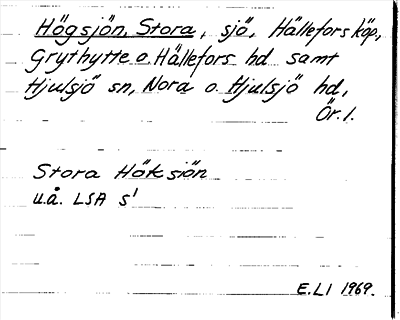 Högsjön, Stora, sjö, Hällefors köp,
Grythytte o. Hällefors hd samt
Hjulsjö sn, Nora o. Hjulsjö hd,
Ör. l.
Stora Höksjön
u.å. LSA s'
E.LI 1969.